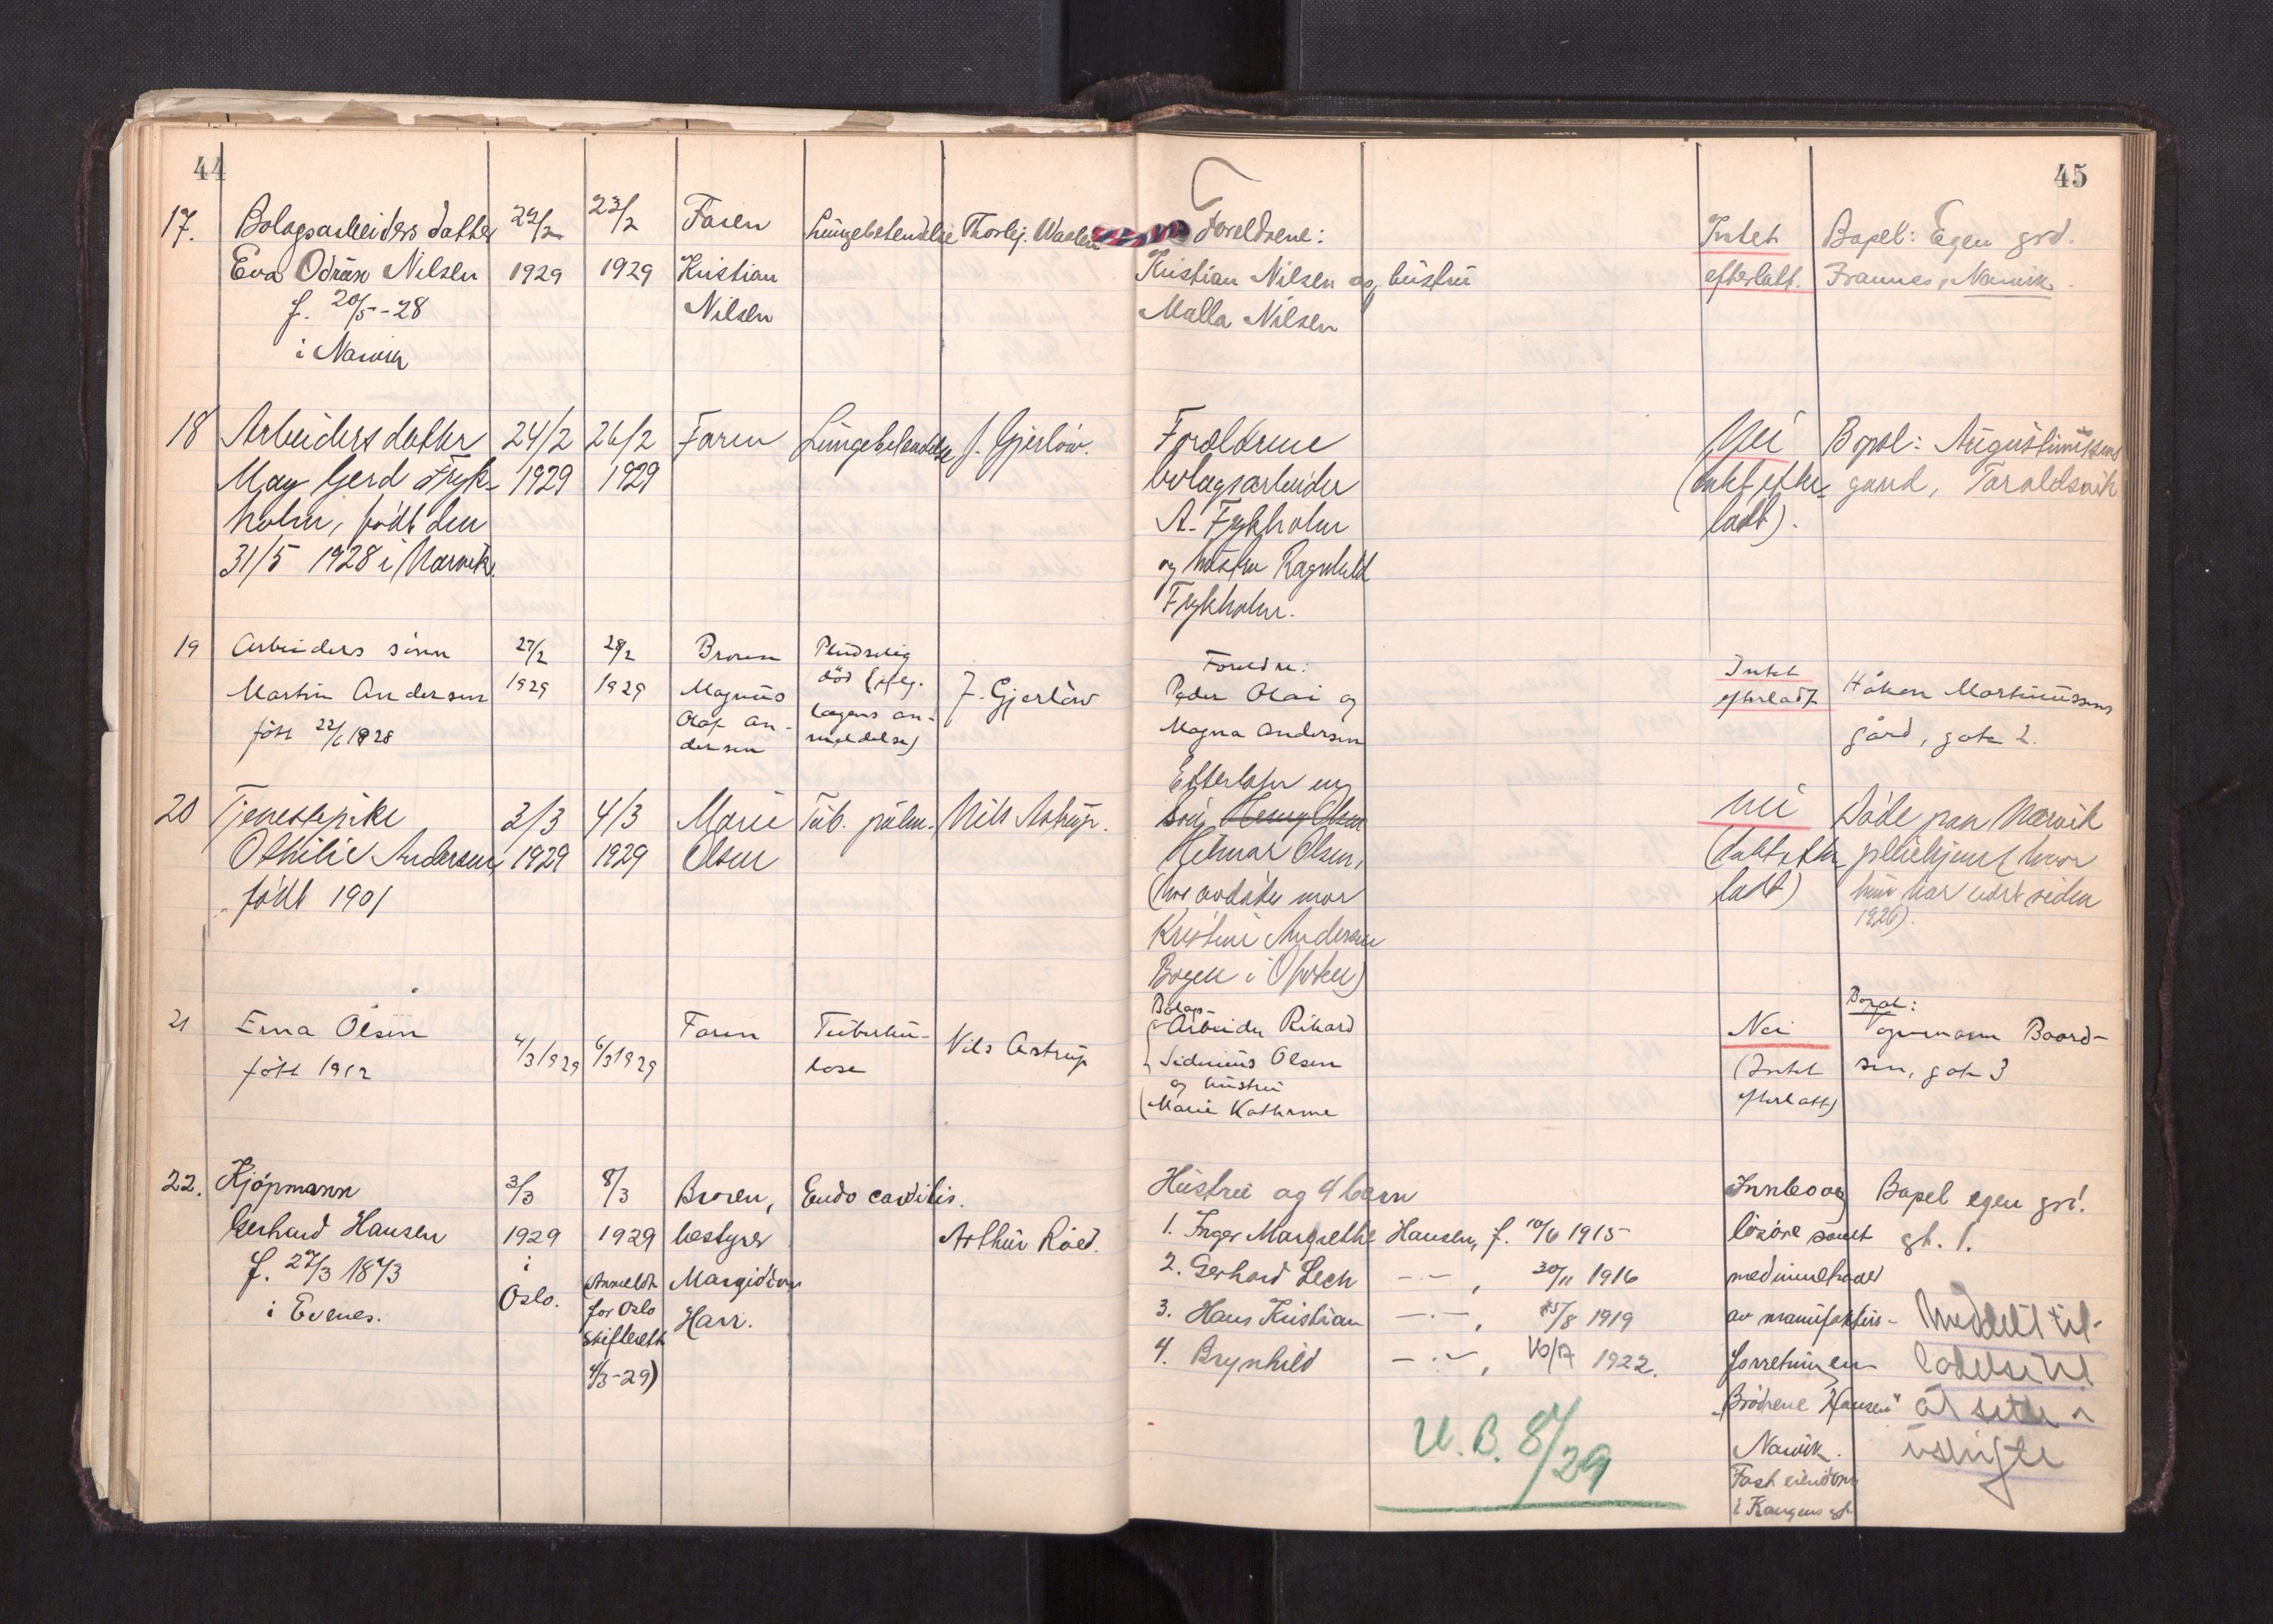 44
17.
Bolagsarbeiders datter
Eva Odrun Nilsen
f. 20/5-28
i Narvik
22/2
1929
23/2
1929
Faren
Kristian
Nilsen
Lungebetendelse
Thorlej. Waalen
18
Arbeiders datter
May Gerd Fryk-
holm, född den
31/5 1928 i Narvik.
24/2
1929
26/2
1929
Faren
Lungebetendelse
J. Gjerløw.
19
Arbeiders sönn
Martin Andersen
född 22/6 1928
27/2
1929
28/2
1929
Broren
Magnus
Olaf An-
dersen
Pludselig
död (iflg.
lægens an-
meldelse)
J. Gjerlöw
20
Tjenestepike
Othilie Andersen
född 1901
3/3
1929
4/3
1929
Marie
Olsen
Tub. pulm.
Nils Astrup.
21
Erna Olsen
född 1912
4/3 1929
6/3 1929
Faren
Tuberku-
lose
Nils Astrup
22.
Kjöpmann
Gerhard Hansen
f. 27/3 1873
i Evenes.
3/3
1929
i
Oslo.
8/3
1929
(Anmeldt
for Oslo
skifterett
4/3-29)
Broren,
bestyrer
Margido
Harr.
Endo carditis.
Arthur Röed.
45
Foreldrene:
Kristian Nilsen og hustru
Malla Nilsen
Intet
efterlatt.
Bopel: Egen grd.
Frannes, Narvik.
Foreldrene
bolagsarbeider
A. Frykholm
og hustru Ragnhild
Frykholm.
Nei
(intet efter-
ladt).
Bopel: Augustinussens
gaard, Taraldsvik
Foreldre:
Peder Olai og
Magna Andersen
Intet
efterladt
Håkon Martinussens
gård, gate 2.
Efterlater en
sön Henry Olsen
Hilmar Olsen,
(hos avdödes mor
Kristine Andersen
Bogen i Ofoten)
Nei
(intet efter
ladt)
Döde paa Narvik
pleiehjem (hvor
hun har vært siden
1926).
Bolags-
Arbeider Rikard
Sidenius Olsen
og hustru
Marie Kathrine
Nei
(Intet
efterlatt)
Bopel:
Baard-
sen, gate 3
Hustru og 4 barn
1. Inger Margrethe Hansen, f. 10/6 1915
2. Gerhard Lech -"-, 30/11 1916
3. Hans Kristian -"-, 15/8 1919
4. Brynhild -"-, 1922.
U. B. 8/4 29
Innbo og
lösöre samt
medinnehaver
av manufaktur-
forretningen
"Brödrene Hansen"
Narvik.
Fast eiendom
i Kongens gt.
Bopel egen grd!
gt. 1.
Meddelt til-
latelse til
å sitte i
uskifte